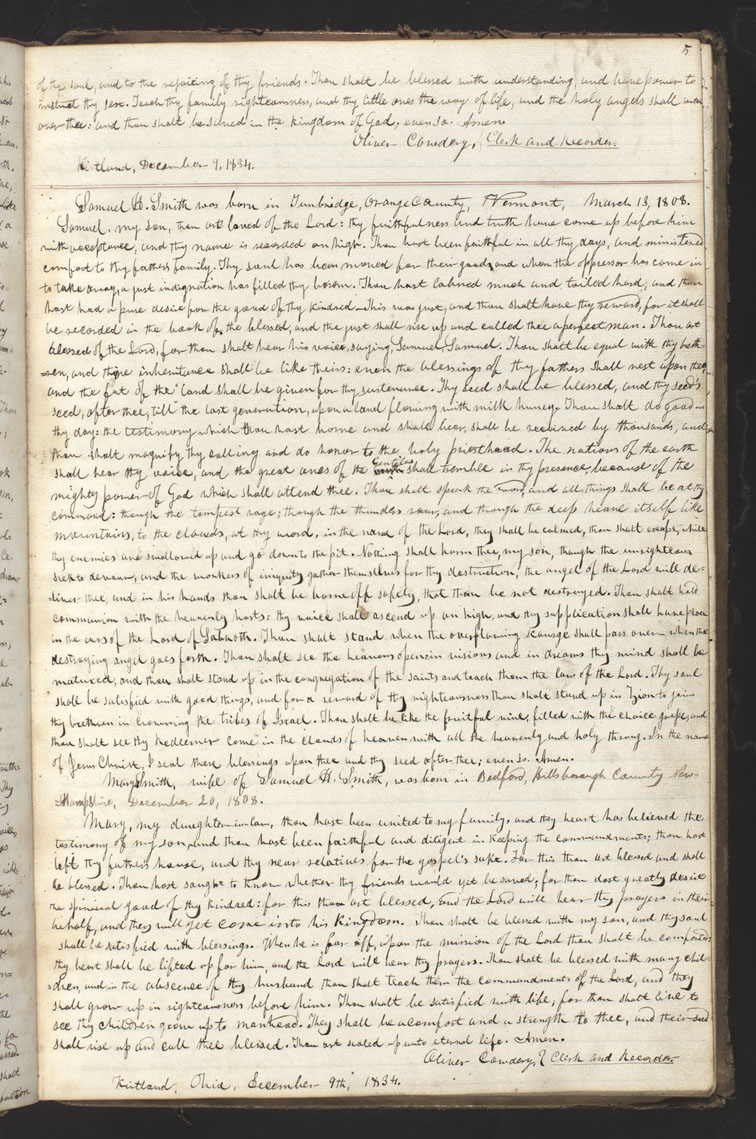 5
of thy soul, and to the rejoicing of thy friends. Thou shalt be blessed with understanding, and have power to
instruct thy sex. Teach thy family righteousness, and thy little ones the way of life, and the holy angels shall watch
over thee: and thou shalt be saved in the kingdom of God, even so. Amen.
Oliver Cowdery, Clerk and Recorder.
Kirtland, December 9, 1834.
Samuel H. Smith was born in Tunbridge, Orange County, Vermont, March 13, 1808.
Samuel, my son, thou art loved of the Lord: thy faithfulness and truth have come up before him
with acceptance, and thy name is recorded on high. Thou hast been faithful in all thy days, and ministered
comfort to thy father's family. Thy soul has been moved for their good, and when the oppressor has come in
to take away, a just indignation has filled thy bosom. Thou hast labored much and toiled hard, and thou
hast had a pure desire for the good of thy kindred. This was just, and thou shalt have thy reward, for it shall
be recorded in the book of the blessed, and the just shall rise up and called thee a perfect man. Thou art
blessed of the Lord, for thou shalt hear his voice, saying, Samuel, Samuel. Thou shalt be equal with thy beth-
ren, and thine inheritance shall be like theirs: even the blessings of thy fathers shall rest upon thee,
and the fat of the land shall be given for thy sustenance. Thy seed shall be blessed, and thy seed's
seed, after thee, till the last generation, upon a land flowing with milk honey. Thou shalt do good in
thy day: the testimony which thou hast borne and shalt bear, shall be received by thousands, and
thou shalt magnify thy calling and do honor to the holy priesthood. The nations of the earth
shall hear thy voice, and the great ones of the Gentiles shall tremble in thy presence, because of the
mighty power of God which shall attend thee. Thou shalt speak the word, and all things shall be at thy
command: though the tempest rage; though the thunders roar; and though the deep heave itself like
mountains, to the clouds, at thy word, in the name of the Lord, they shall be calmed, thou shalt escape, while
thy enemies are swallowed up and go down to the pit. Nothing shall harm thee, my son, though the unrighteous
seek to devour, and the workers of iniquity gather themselves for thy destruction, the angel of the Lord will de-
liver thee, and in his hands thou shalt be borne off safely, that thou be not destroyed. Thou shalt hold
communion with the heavenly hosts: thy voice shall ascend up on high, and thy supplication shall have place
in the ears of the Lord of Sabaoth. Thou shalt stand when the overflowing scourge shall pass over—when the
destroying angel goes forth. Thou shalt see the heavens open: in visions and in dreams thy mind shall be
matured, and thou shalt stand up in the congregation of the saints and teach them the law of the Lord. Thy soul
shall be satisfied with good things, and for a reward of thy righteousness thou shalt stand up in Zion to join
thy brethren in crowning the tribes of Israel. Thou shalt be like the fruitful vine, filled with the choice grape, and
thou shalt see thy Redeemer come in the clouds of heaven with all the heavenly and holy throng. In the name
of Jesus Christ, I seal these blessings upon thee and thy seed after thee; even so. Amen.
Mary Smith, wife of Samuel H. Smith, was born in Bedford, Hillsborough County New-
Hampshire, December 20, 1808.
Mary, my daughter-in-law, thou hast been united to my family, and thy heart has believed the
testimony of my son, and thou hast been faithful and diligent in keeping the commandments; thou hast
left thy fathers house, and thy near relatives for the gospel's sake. For this thou art blessed and shalt
be blessed. Thou hast sought to know whether thy friends would yet be saved; for thou dost greatly desire
the spiritual good of thy kindred: for this thou art blessed, and the Lord will hear thy prayers in their
behalf, and they will yet come into his kingdom. Thou shalt be blessed with my son, and thy soul
shall be satisfied with blessings. When he is far off, upon the mission of the Lord thou shalt be comforted:
thy heart shall be lifted up for him, and the Lord will hear thy prayers. Thou shalt be blessed with many chil-
dren, and in the absence of thy husband thou shalt teach them the commandments of the Lord, and they
shall grow up in righteousness before him. Thou shalt be satisfied with life, for thou shalt live to
see thy children grow up to manhood. They shall be a comfort and a strength to thee, and their seed
shall rise up and call thee blessed. Thou art sealed up unto eternal life. Amen.
Oliver Cowdery, Clerk and Recorder
Kirtland, Ohio, December 9th, 1834.